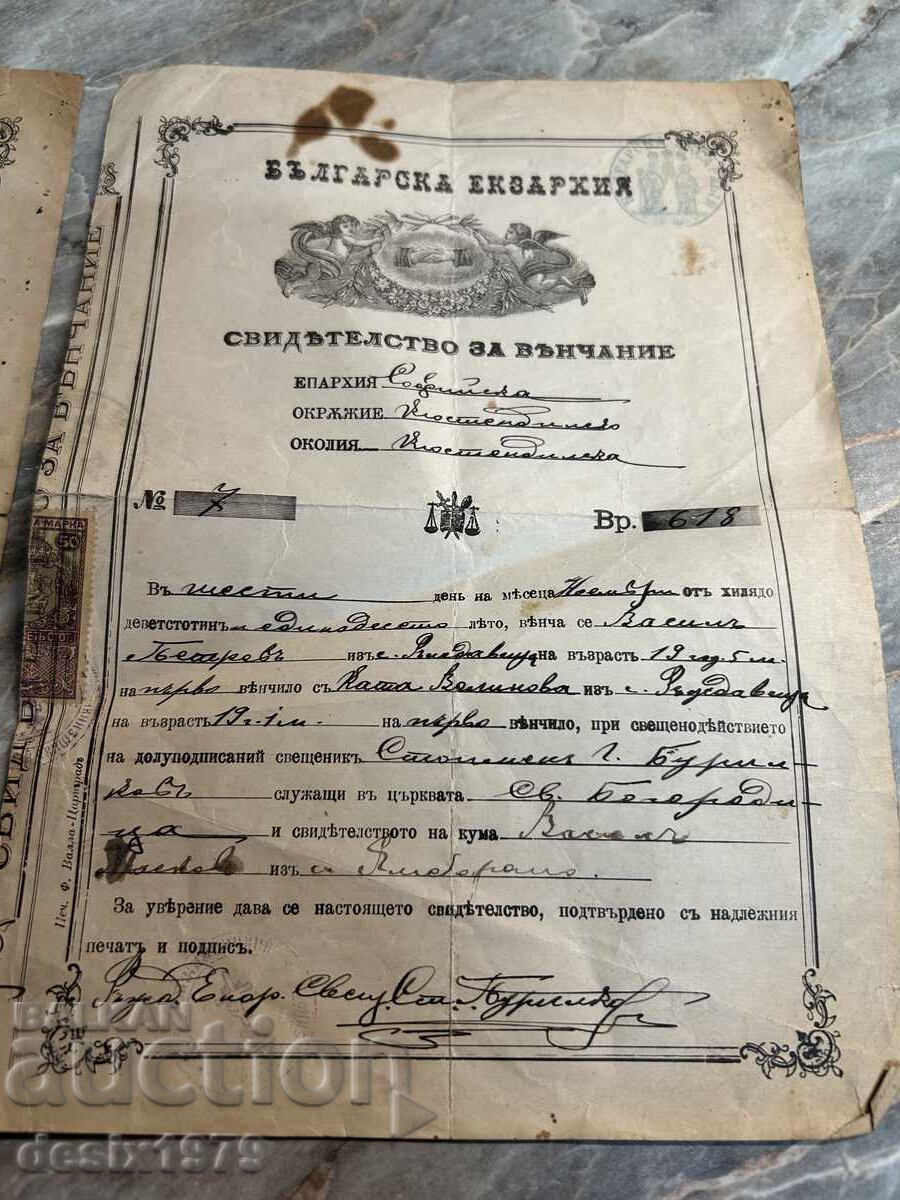 БЪЛГАРСКА ЕКЗАРХИЯ
СВИДѢТЕЛСТВО ЗА ВѢНЧАНИЕ
ЕПАРХИЯ Софийска
ОКРѪЖИЕ Кюстендилско
ОКОЛИЯ Кюстендилска
№ 7 Вр. 618
Въ шести день на мѣсеца Ноемврий отъ хилядо
деветстотин и единадесето лѣто, вѣнча се Василъ
Петровъ изъ с. на възрасть 19 год. 5 м.
на първо вѣнчило съ Ката Волинова изъ с.
на възрасть 19 г. 1 м. на първо вѣнчило, при свещенодѣйствието
на долуподписаний свещеникъ Стоименъ Г. Бурил-
ковъ служащи въ църквата Св. Богороди-
ца и свидѣтелството на кума Василъ
изъ с.
За увѣрение дава се настоящето свидѣтелство, подтвърдено съ надлежния
печатъ и подписъ.
Енор. Свещ. Ст. Бурилков
Печ. Ф. Валла-Цариградъ
ЗА ВѢНЧАНИЕ
МАРКА
50
BALKAN
auction
desix1979